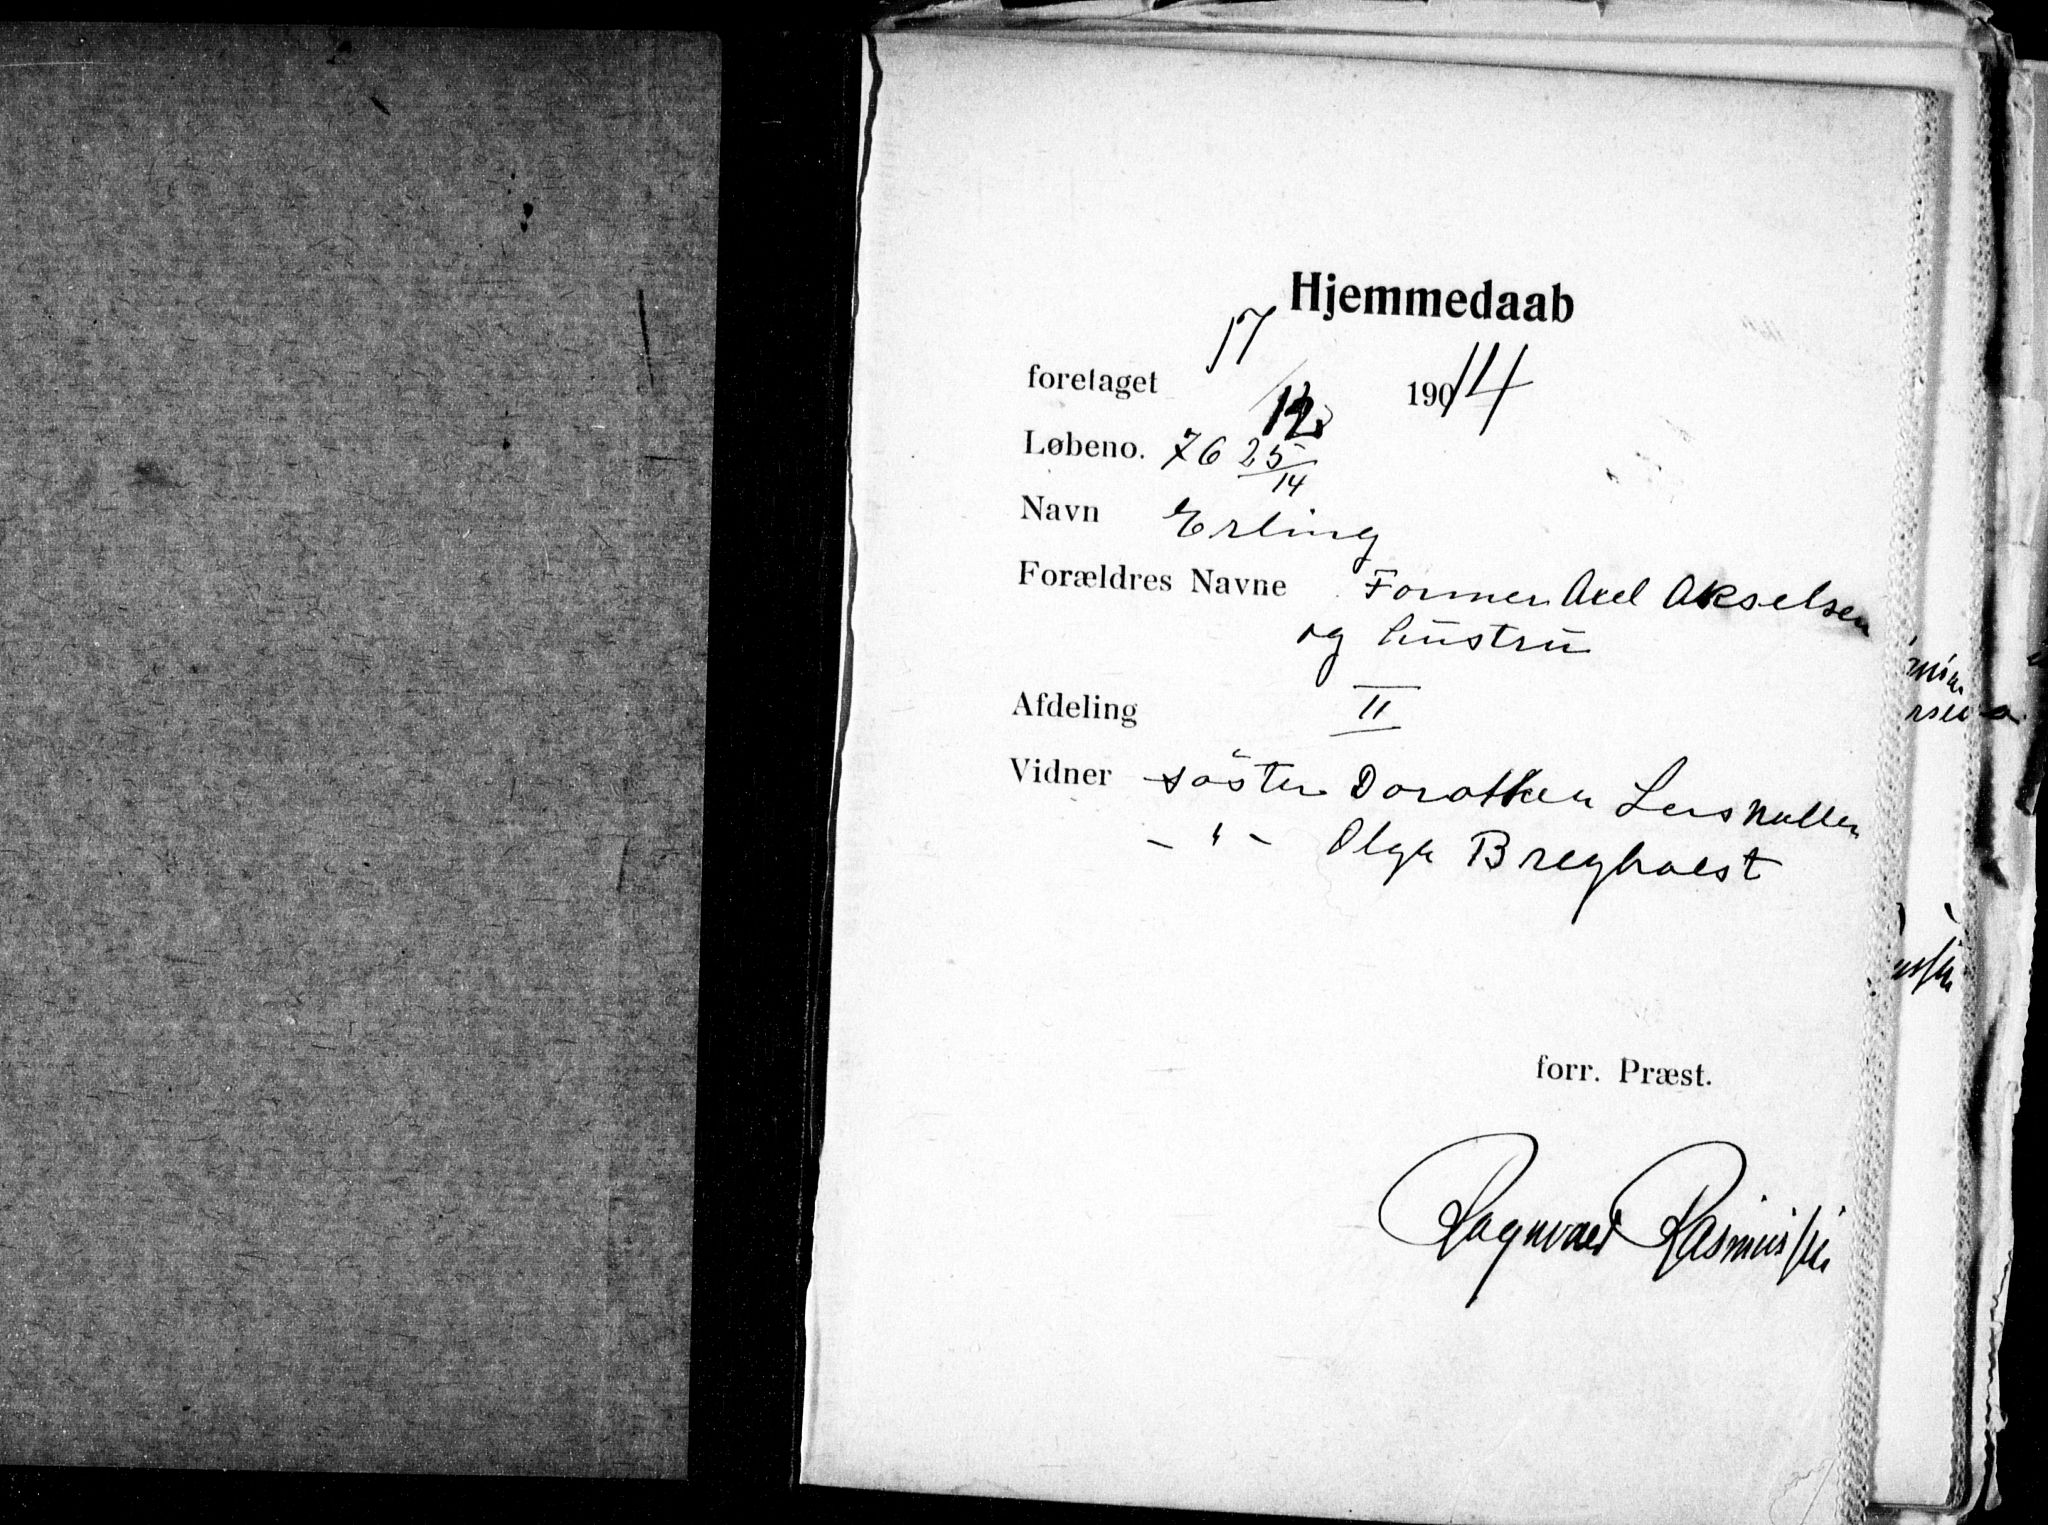 Hjemmedaab
foretaget 17/12 1914
Løbeno. 7625/14
Navn Erling
Forældres Navne Former Axel Akselsen
og hustru
Afdeling II
Vidner söster Dorothea
— " — Olga Bregholst
forr. Præst.
Ragnvald Rasmussen